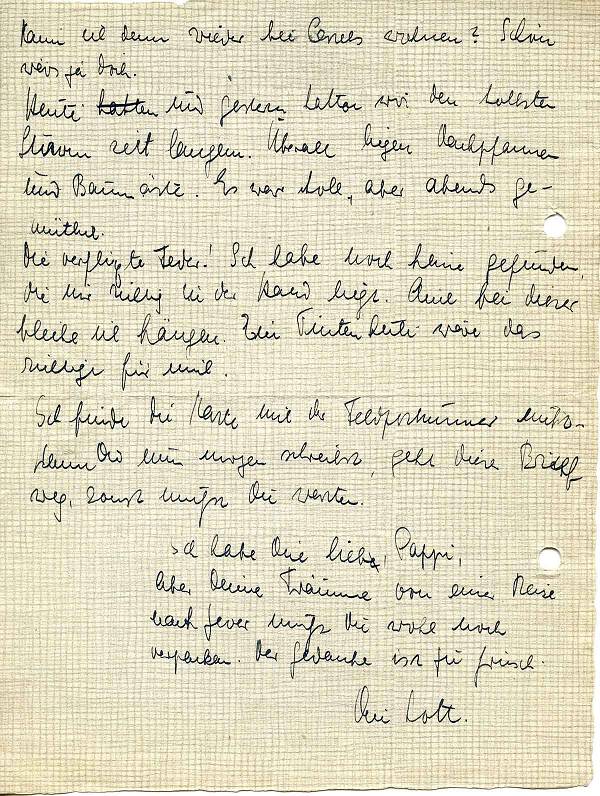 Kann ich denn wieder bei Cassels wohnen? Schön
wärs ja doch.
Heute hatten und gestern hatten wir den tollsten
Sturm seit langem. Überall liegen Dachpfannen
und Baumäste. Es war toll, aber abends ge-
mütlich.
Die verflixte Feder! Ich habe noch keine gefunden,
die mir richtig in der Hand liegt. Auch bei dieser
bleibe ich hängen. Ein Tintenstift wäre das
richtige für mich.
Ich finde die Karte mit der Feldpostnummer nicht.
Wenn Du mir morgen schreibst, geht dieser Brief
weg, sonst mußt Du warten.
Ich habe Dich lieb, Pappi,
Aber Deine Träume von einer Reise
nach Jever mußt Du wohl noch
verpacken. Der Gedanke ist zu frisch.
Dein Lott.